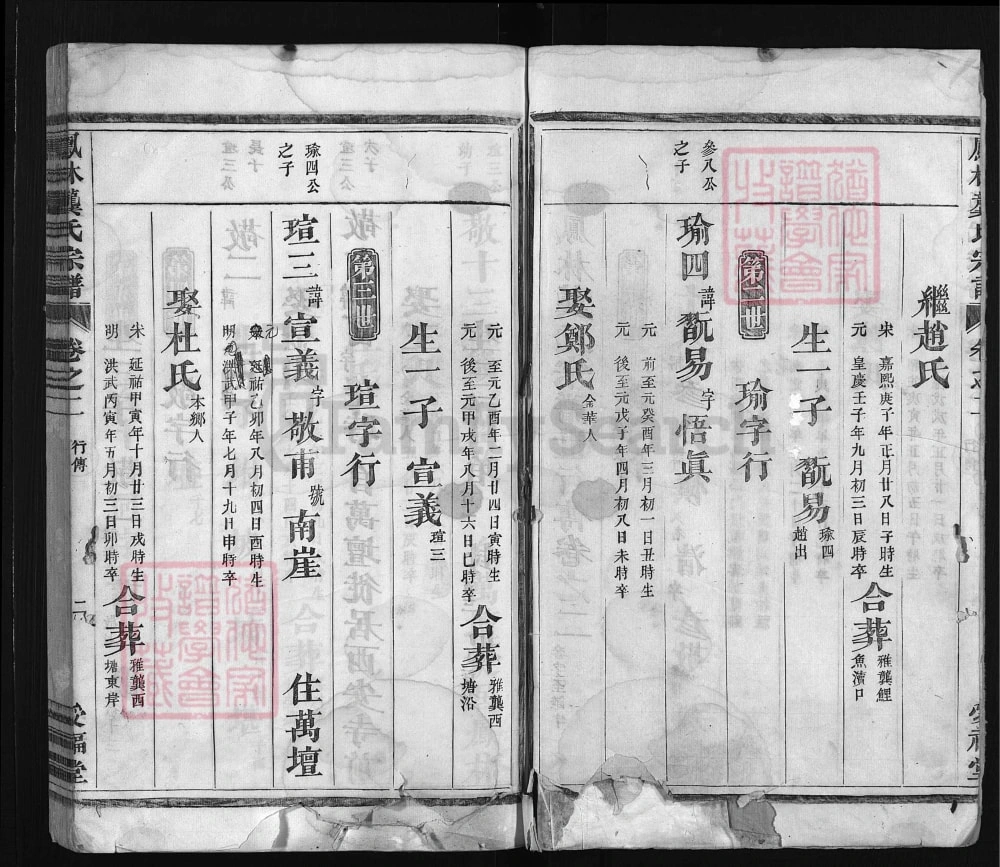 繼趙氏
宋 嘉熙庚子年正月廿八日子時生
元 皇慶壬子年九月初三日辰時卒
合葬 雅龔鯉魚濆口
生一子 翫易 瑜四 趙出
第二世 瑜字行
參八公之子
瑜四 諱 翫易 字 悟真
元 前至元癸酉年三月初一日丑時生
元 後至元戊子年四月初八日未時卒
娶鄭氏 金華人
元 至元乙酉年二月廿四日寅時生
元 後至元甲戌年八月十六日巳時卒
合葬 雅龔西塘沿
生一子 宣義 瑄三
第三世 瑄字行
瑜四公之子
瑄三 諱 宣義 字 敬甫 號 南崖 住萬壇
延祐乙卯年八月初四日酉時生
明 洪武甲子年七月十九日申時卒
娶杜氏 本鄉人
宋 延祐甲寅年十月廿三日戌時生
明 洪武丙寅年五月初三日卯時卒
合葬 雅龔西塘東岸
鳳林龔氏宗譜 卷之二 行傳 二 愛福堂